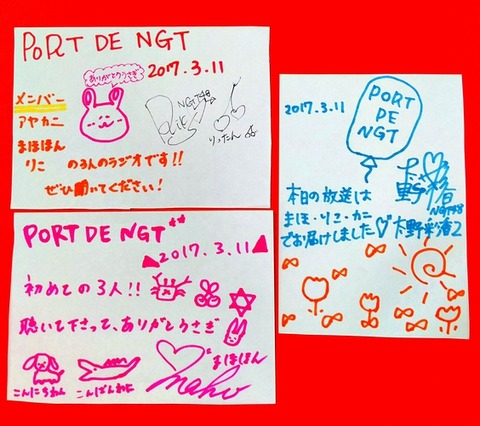 PORT DE NGT
ありがとうさぎ
2017.3.11
メンバー
アヤカニ
まほほん
りこ の3人のラジオです!!
ぜひ聞いてください!
NGT48
りったん
PORT DE NGT
2017.3.11
初めての3人!!
聴いて下さって、ありがとうさぎ
こんにちわん
こんばんわに
まほほん
maho
2017.3.11
PORT
DE
NGT
本日の放送は
まほ・りこ・カニ
でお届けしました♡
NGT48